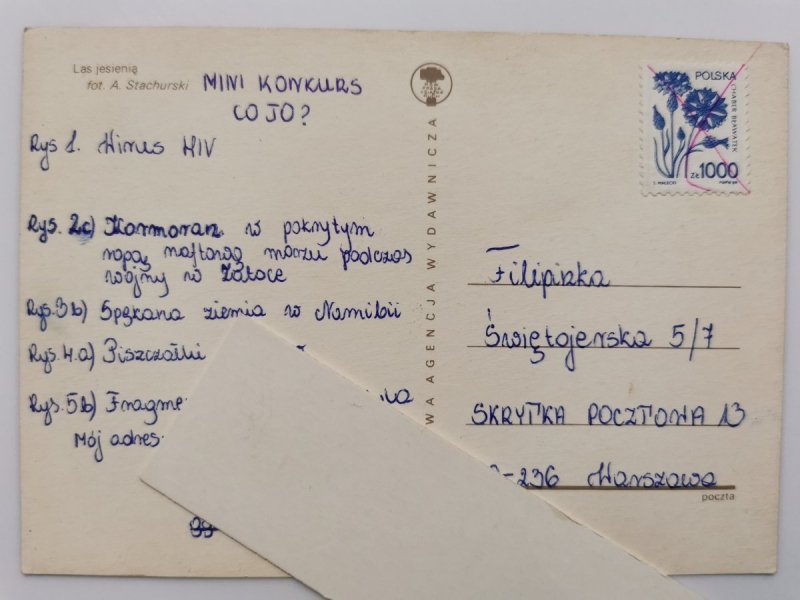 Las jesienią
fot. A. Stachurski
MINI KONKURS
CO JO?
Rys 1. Wirus HIV
Rys. 2c) Kormoran w pokrytym
ropą naftową morzu podczas
wojny w Zatoce
Rys. 3b) Spękana ziemia w Namibii
Rys. 4.a) Piszczałki
Rys. 5b) Fragme
Mój adres
WA AGENCJA WYDAWNICZA
POLSKA
CHABER BŁAWATEK
ZŁ 1000
Filipinka
Świętojerska 5/7
SKRYTKA POCZTOWA 13
-236 Warszawa
poczta